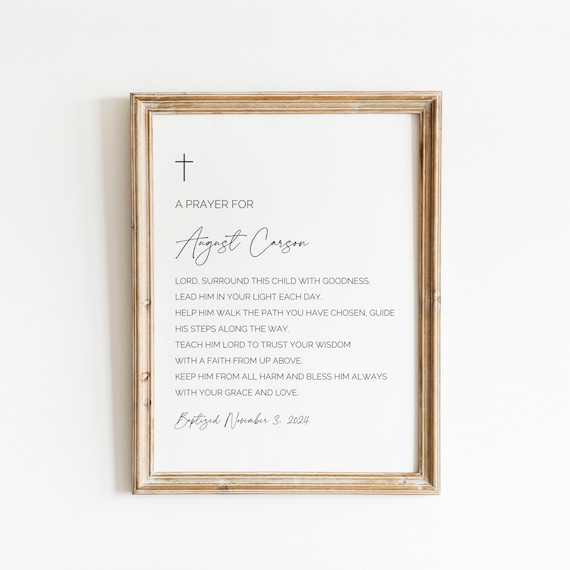 A PRAYER FOR
August Carson
LORD, SURROUND THIS CHILD WITH GOODNESS.
LEAD HIM IN YOUR LIGHT EACH DAY.
HELP HIM WALK THE PATH YOU HAVE CHOSEN, GUIDE
HIS STEPS ALONG THE WAY.
TEACH HIM LORD TO TRUST YOUR WISDOM
WITH A FAITH FROM UP ABOVE.
KEEP HIM FROM ALL HARM AND BLESS HIM ALWAYS
WITH YOUR GRACE AND LOVE.
Baptized November 3, 2024